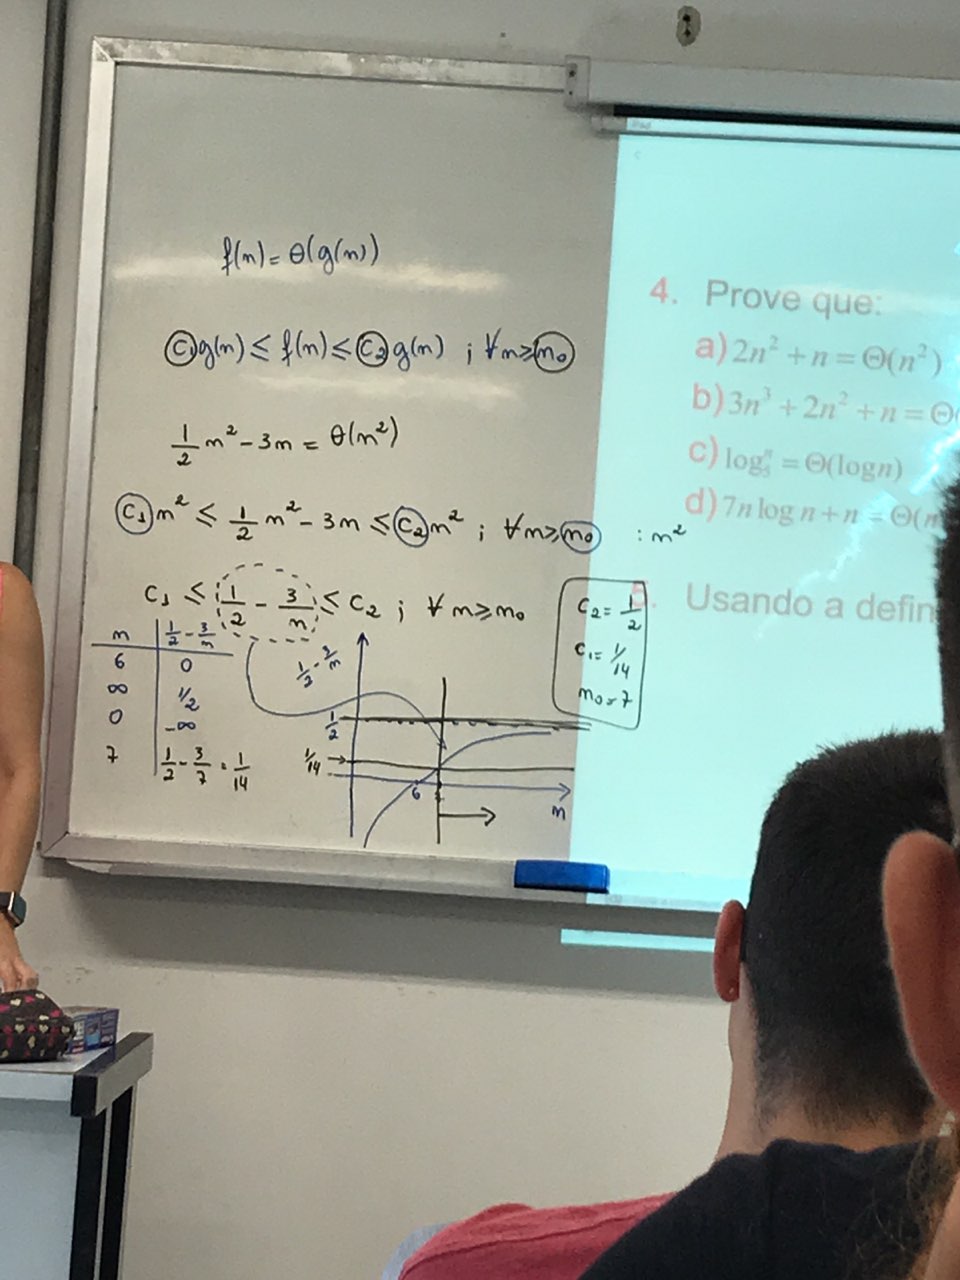 f(n) = θ(g(n))
C₁g(n) ≤ f(n) ≤ C₂g(n) ; ∀n≥n₀
1/2 n² - 3n = θ(n²)
C₁n² ≤ 1/2 n² - 3n ≤ C₂n² ; ∀n≥n₀ : n²
C₁ ≤ 1/2 - 3/n ≤ C₂ ; ∀n≥n₀
n 1/2 - 3/n
6 0
∞ 1/2
0 -∞
7 1/2 - 3/7 = 1/14
1/2 - 3/n
1/2
1/14
6
n
C₂ = 1/2
C₁ = 1/14
n₀ = 7
4. Prove que:
a) 2n² + n = Θ(n²)
b) 3n³ + 2n² + n = Θ(
c) log₅ⁿ = Θ(logn)
d) 7n log n + n = Θ(n
5. Usando a defin